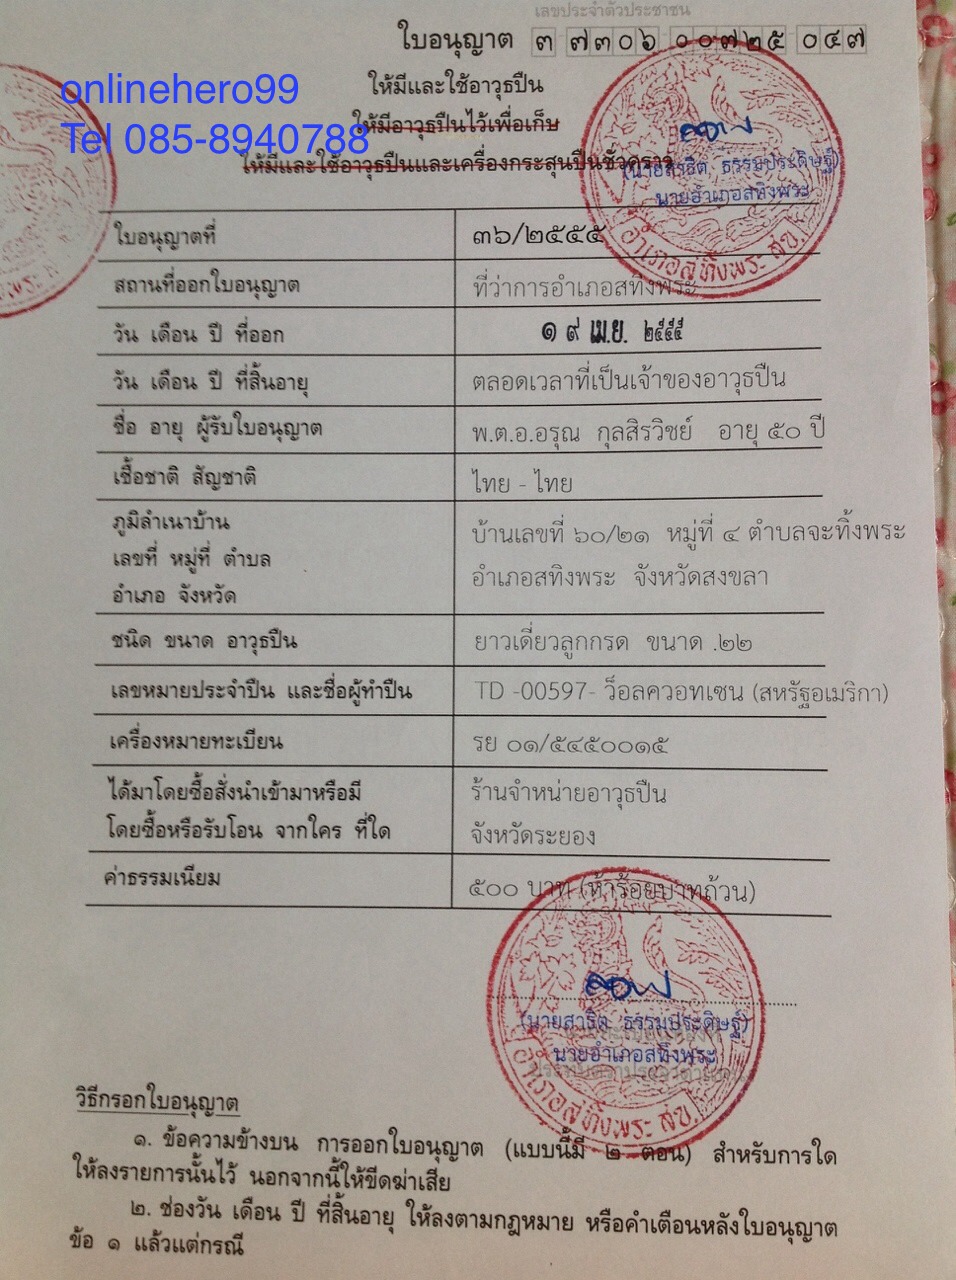 เลขประจำตัวประชาชน
ใบอนุญาต ๓ ๗๓๐๖ ๐๐๗๒๕ ๐๔๗
ให้มีและใช้อาวุธปืน
onlinehero99
ให้มีอาวุธปืนไว้เพื่อเก็บ
Tel 085-8940788
ให้มีและใช้อาวุธปืนและเครื่องกระสุนปืนชั่วคราว
(นายสาธิต ธรรมประดิษฐ์)
นายอำเภอสทิงพระ
อำเภอสทิงพระ สข.
พระ สข.
ใบอนุญาตที่ ๓๖/๒๕๕๕
สถานที่ออกใบอนุญาต ที่ว่าการอำเภอสทิงพระ
วัน เดือน ปี ที่ออก ๑๙ เม.ย. ๒๕๕๕
วัน เดือน ปี ที่สิ้นอายุ ตลอดเวลาที่เป็นเจ้าของอาวุธปืน
ชื่อ อายุ ผู้รับใบอนุญาต พ.ต.อ.อรุณ กุลสิรวิชย์ อายุ ๕๐ ปี
เชื้อชาติ สัญชาติ ไทย - ไทย
ภูมิลำเนาบ้าน บ้านเลขที่ ๖๐/๒๑ หมู่ที่ ๔ ตำบลจะทิ้งพระ
เลขที่ หมู่ที่ ตำบล อำเภอสทิงพระ จังหวัดสงขลา
อำเภอ จังหวัด
ชนิด ขนาด อาวุธปืน ยาวเดี่ยวลูกกรด ขนาด .๒๒
เลขหมายประจำปืน และชื่อผู้ทำปืน TD -00597- ว็อลควอทเซน (สหรัฐอเมริกา)
เครื่องหมายทะเบียน รย ๐๑/๕๔๕๐๐๑๕
ได้มาโดยซื้อสั่งนำเข้ามาหรือมี ร้านจำหน่ายอาวุธปืน
โดยซื้อหรือรับโอน จากใคร ที่ใด จังหวัดระยอง
ค่าธรรมเนียม ๕๐๐ บาท (ห้าร้อยบาทถ้วน)
(นายสาธิต ธรรมประดิษฐ์)
นายอำเภอสทิงพระ
อำเภอสทิงพระ สข.
วิธีกรอกใบอนุญาต
๑. ข้อความข้างบน การออกใบอนุญาต (แบบนี้มี ๒ ตอน) สำหรับการใด
ให้ลงรายการนั้นไว้ นอกจากนี้ให้ขีดฆ่าเสีย
๒. ช่องวัน เดือน ปี ที่สิ้นอายุ ให้ลงตามกฎหมาย หรือคำเตือนหลังใบอนุญาต
ข้อ ๑ แล้วแต่กรณี